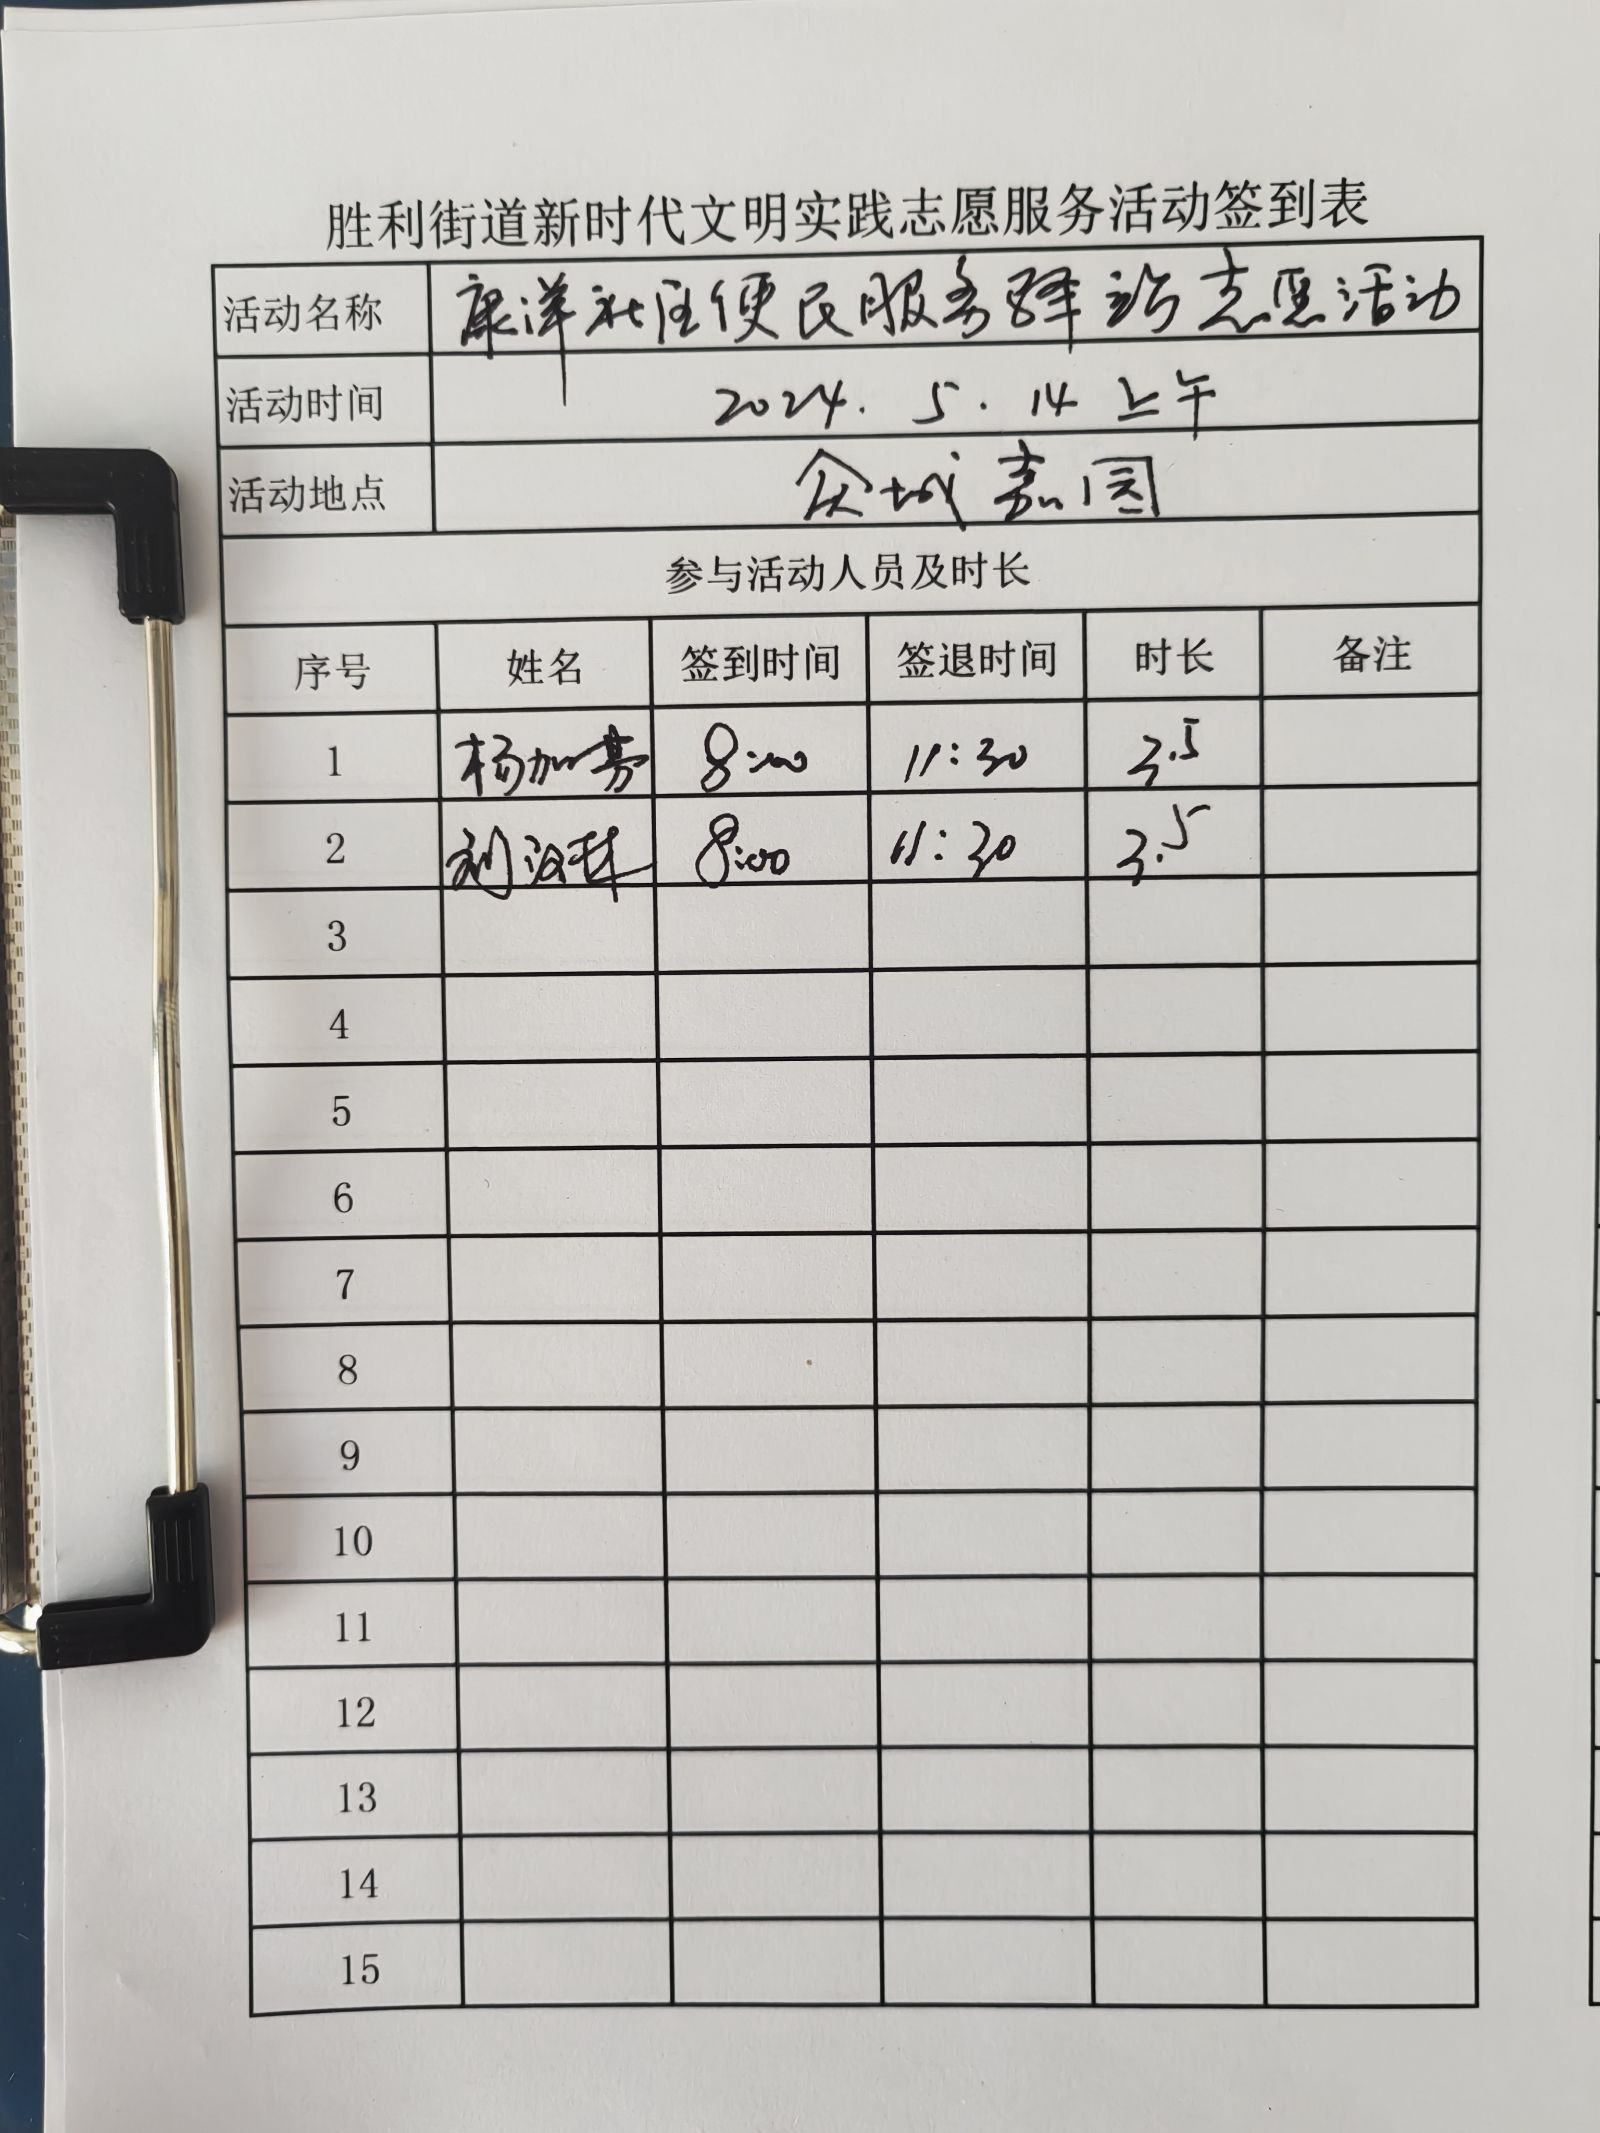 胜利街道新时代文明实践志愿服务活动签到表
活动名称 康洋社区便民服务驿站志愿活动
活动时间 2024.5.14上午
活动地点 众城嘉园
参与活动人员及时长
序号 姓名 签到时间 签退时间 时长 备注
1 杨加芬 8:00 11:30 3.5
2 刘汉林 8:00 11:30 3.5
3
4
5
6
7
8
9
10
11
12
13
14
15